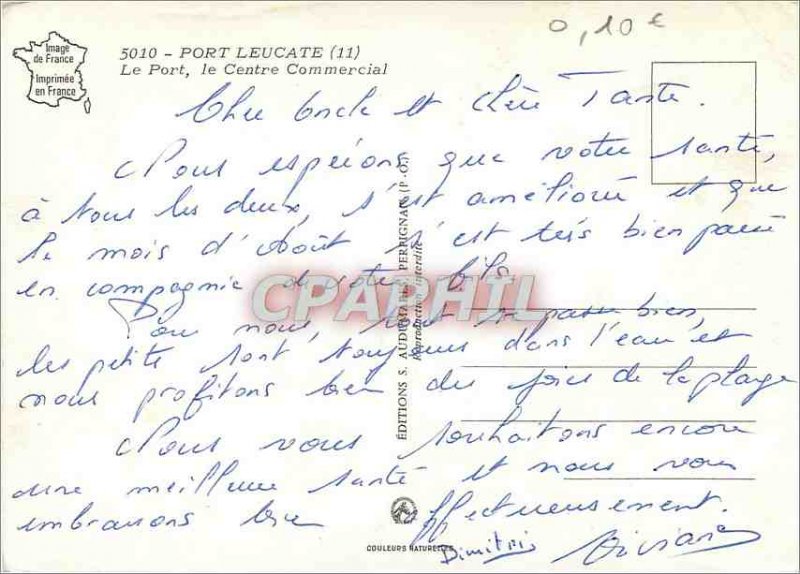 0,10 €
Image
de France
Imprimée
en France
5010 - PORT LEUCATE (11)
Le Port, le Centre Commercial
Cher Oncle et Chère Tante.
Nous espérons que votre santé,
à tous les deux, s'est améliorée et que
le mois d'Août s'est très bien passé
en compagnie de votre fils.
Pour nous, tout se passe bien,
les petits sont toujours dans l'eau et
nous profitons bien des joies de la plage
Nous vous souhaitons encore
une meilleure santé et nous vous
embrassons bien affectueusement.
Dimitri Viviane
ÉDITIONS S. AUDUMARES, PERPIGNAN (P.-O.)
Reproduction interdite
COULEURS NATURELLES
CPAPHIL